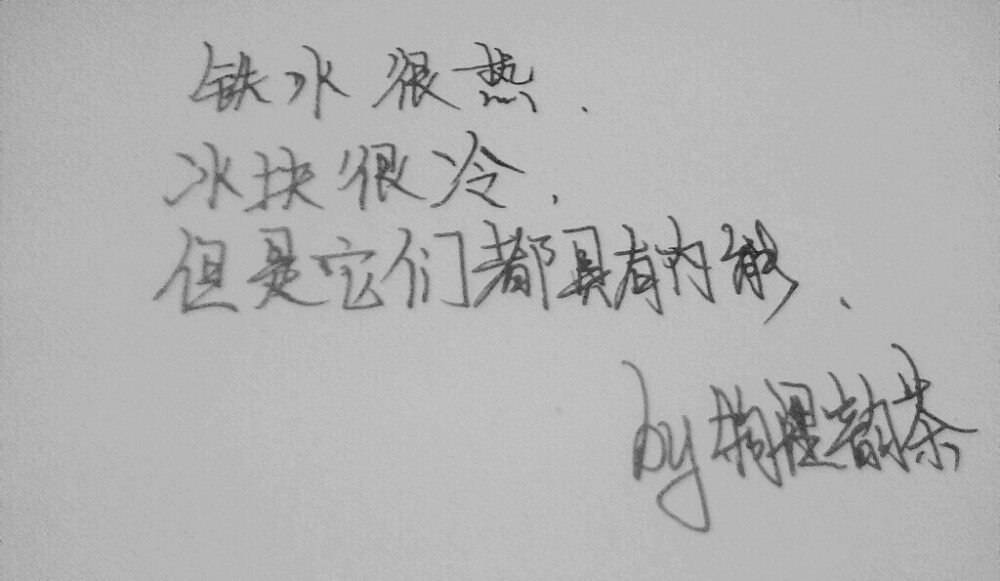 铁水很热.
冰块很冷.
但是它们都具有内能.
by 物理